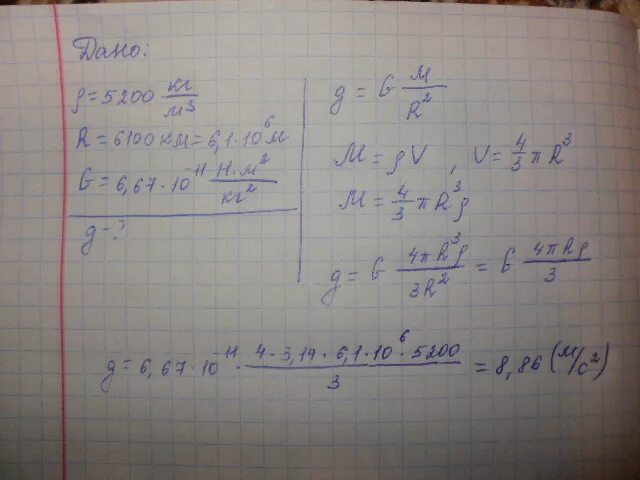 Дано:
ρ = 5200 кг/м³
R = 6100 км = 6,1·10⁶ м
G = 6,67·10⁻¹¹ Н·м²/кг²
g - ?
g = G M/R²
M = ρV , V = 4/3 πR³
M = 4/3 πR³ρ
g = G 4πR³ρ/3R² = G 4πRρ/3
g = 6,67·10⁻¹¹ · 4·3,14·6,1·10⁶·5200/3 = 8,86 (м/с²)